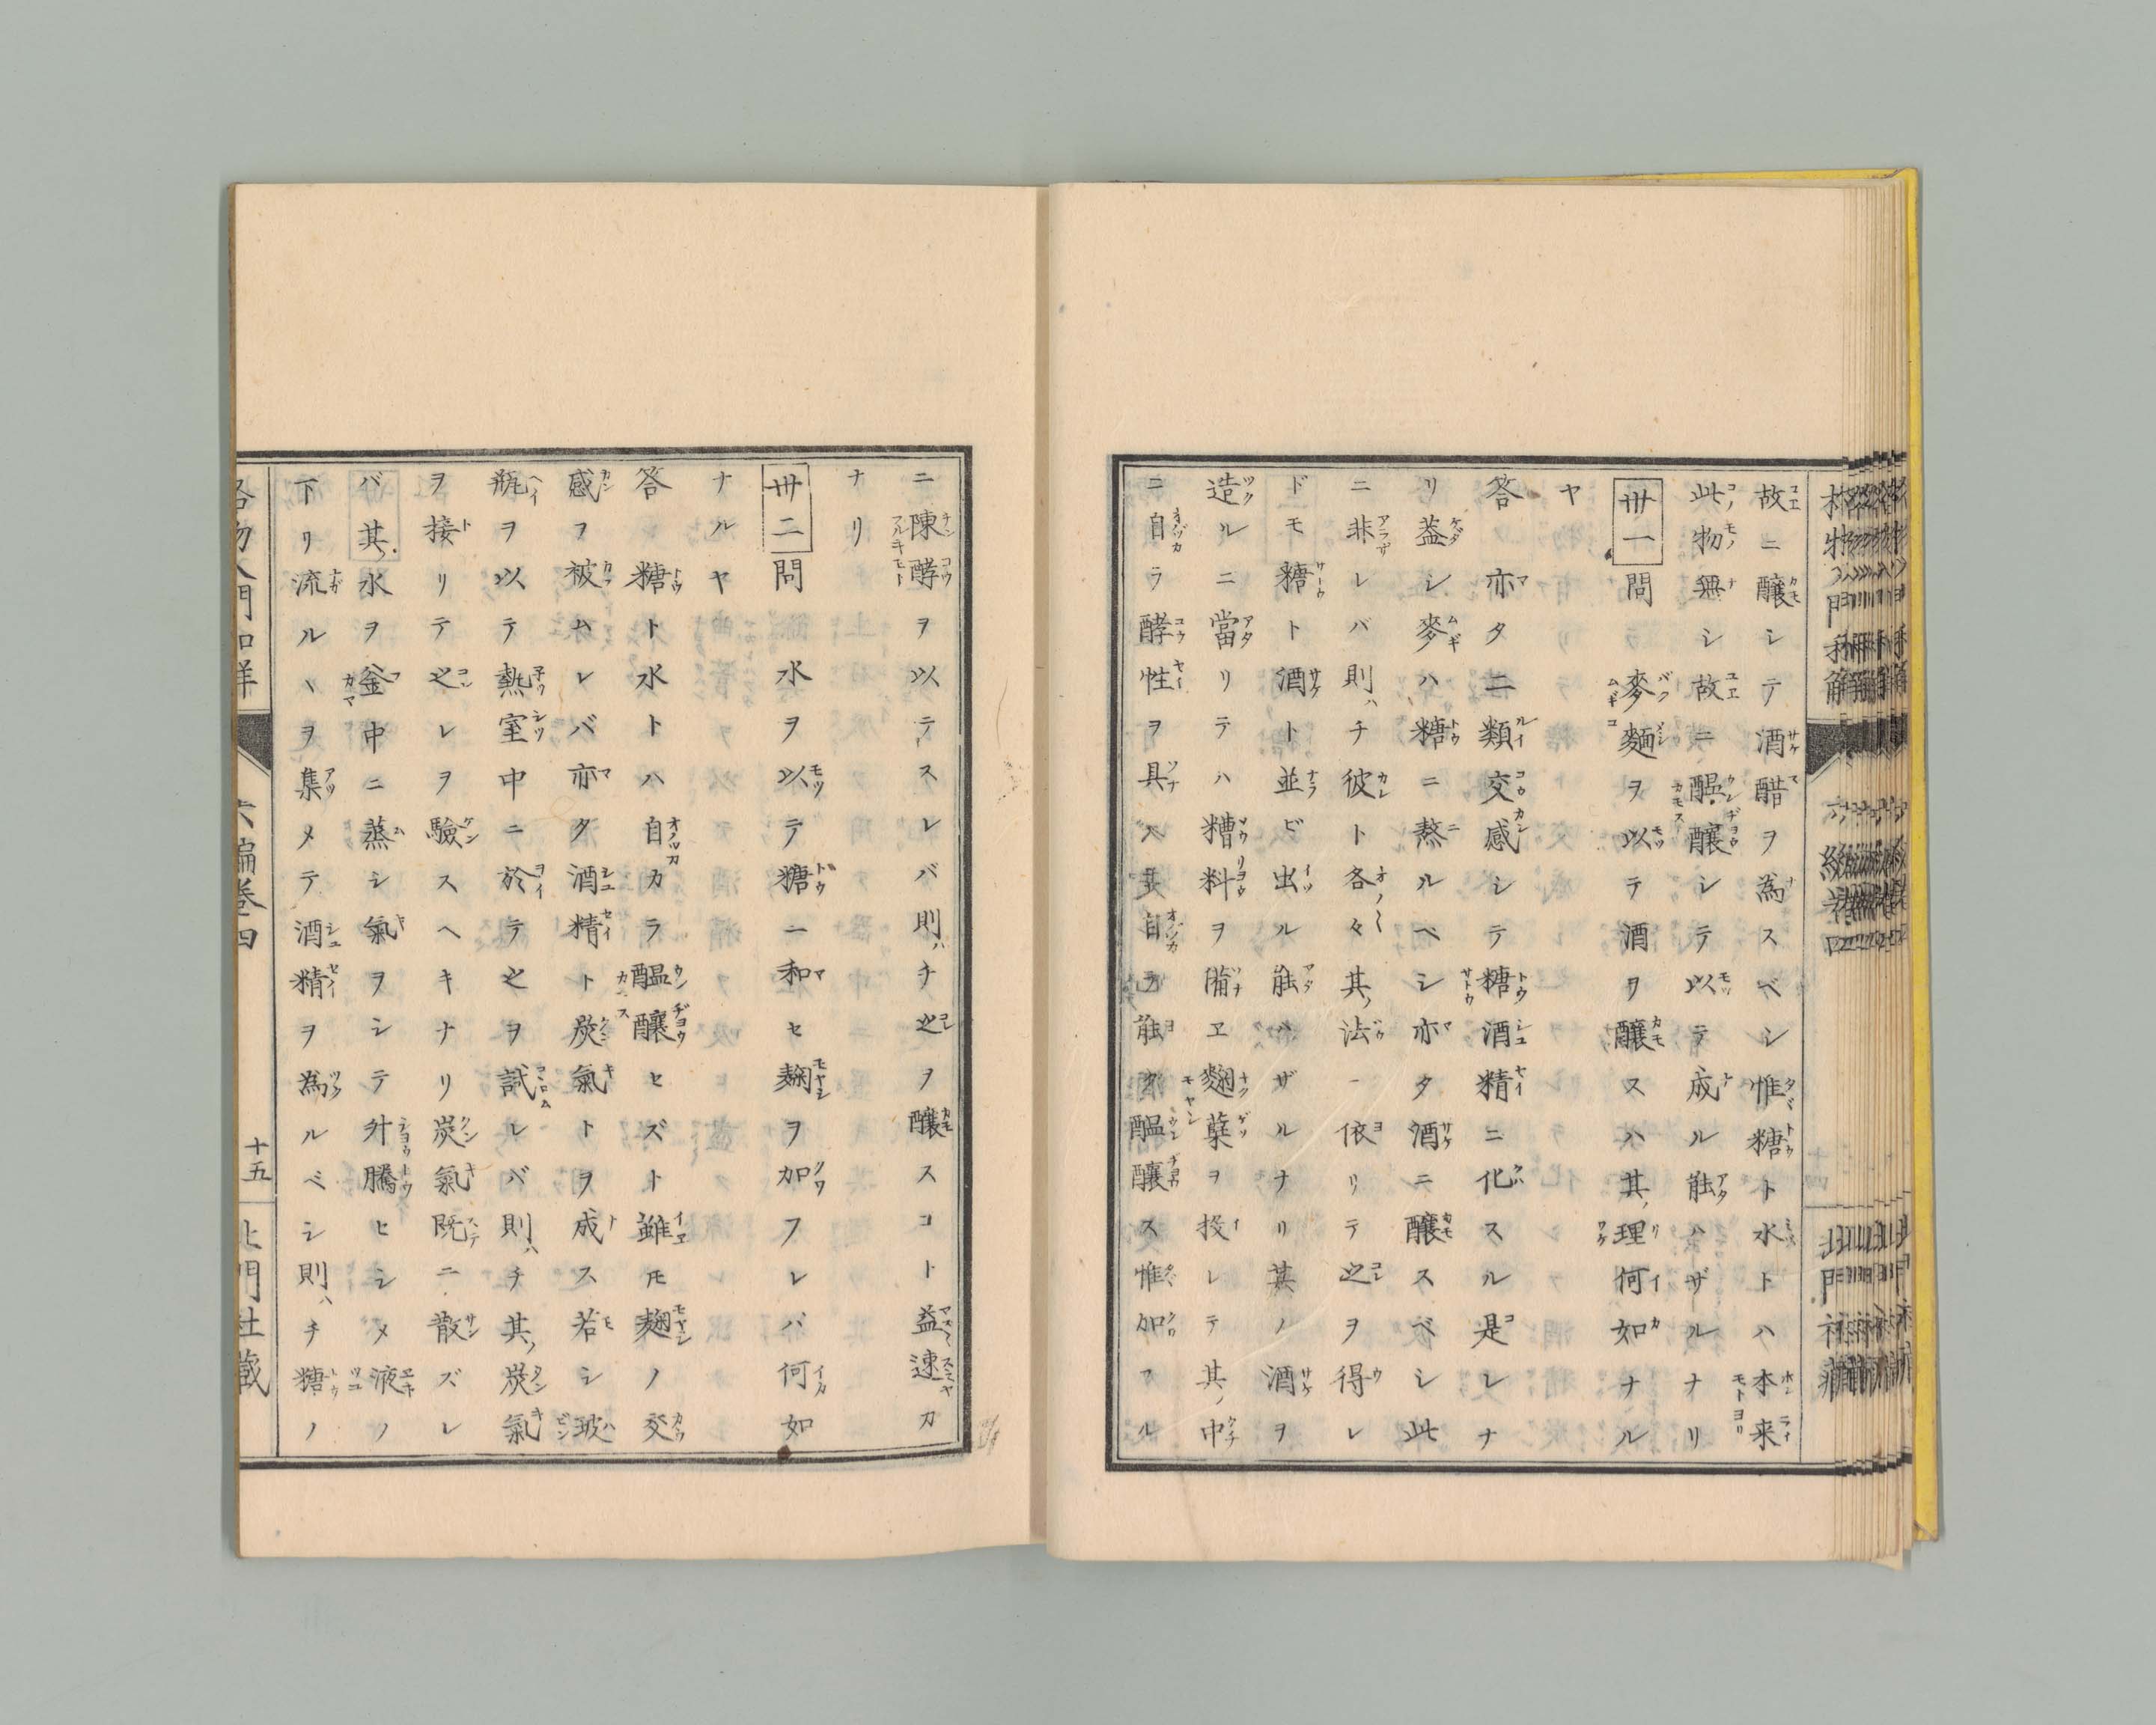 故ニ醸シテ酒醋ヲ為スベシ惟糖ト水トハ本来
此物無シ故ニ醞醸シテ以テ成ル能ハザルナリ
丗一問 麥麺ヲ以テ酒ヲ醸スハ其ノ理何如ナル
ヤ
答 亦タ二類交感シテ糖酒精ニ化スル是レナ
リ蓋シ麥ハ糖ニ熬ルベシ亦タ酒ニ醸スベシ此
ニ非レバ則ハチ彼ト各々其ノ法ニ依リテ之ヲ得レ
ドモ糖ト酒ト並ビ出ル能ハザルナリ其ノ酒ヲ
造ルニ當リテハ糟料ヲ備ヱ麹糵ヲ投レテ其ノ中
ニ自ラ酵性ヲ具ヘ其自ラ能ク醞醸ス惟加フル
ニ陳酵ヲ以テスレバ則ハチ之ヲ醸スコト益速カ
ナリ
丗二問 水ヲ以テ糖ニ和セ麹ヲ加フレバ何如
ナルヤ
答 糖ト水トハ自カラ醞醸セズト雖𪜈麹ノ交
感ヲ被ムレバ亦タ酒精ト炭氣トヲ成ス若シ玻
瓶ヲ以テ熱室中ニ於テ之ヲ試レバ則ハチ其ノ炭氣
ヲ接リテ之レヲ驗スヘキナリ炭氣既ニ散ズレ
バ其ノ水ヲ釜中ニ蒸シ氣ヲシテ升騰ヒシメ液ノ
下リ流ルヽヲ集メテ酒精ヲ為ルベシ則ハチ糖ノ
格物入門和解 六編巻四 十五 北門社蔵